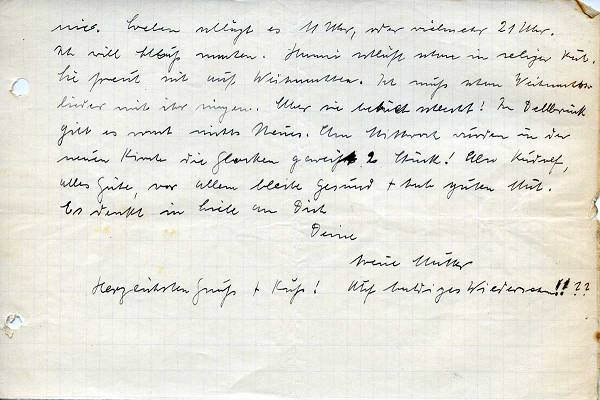 nie. Soeben schlägt es 11 Uhr, oder vielmehr 21 Uhr.
Ich will Schluß machen. Hanni schläft schon in seliger Ruh.
Sie freut sich auf Weihnachten. Ich muß schon Weihnachts-
lieder mit ihr singen. Aber sie schlecht! In Dellbrück
gibt es sonst nichts Neues. Am Mittwoch wurden in der
neuen Kirche die Glocken geweiht 2 Stück! Also
alles Gute, vor allem bleibe gesund + hab guten Mut.
Es denkt in Liebe an Dich
Deine
treue Mutter
Herzlichsten Gruß + Kuß! Auf baldiges Wiedersehen!!??